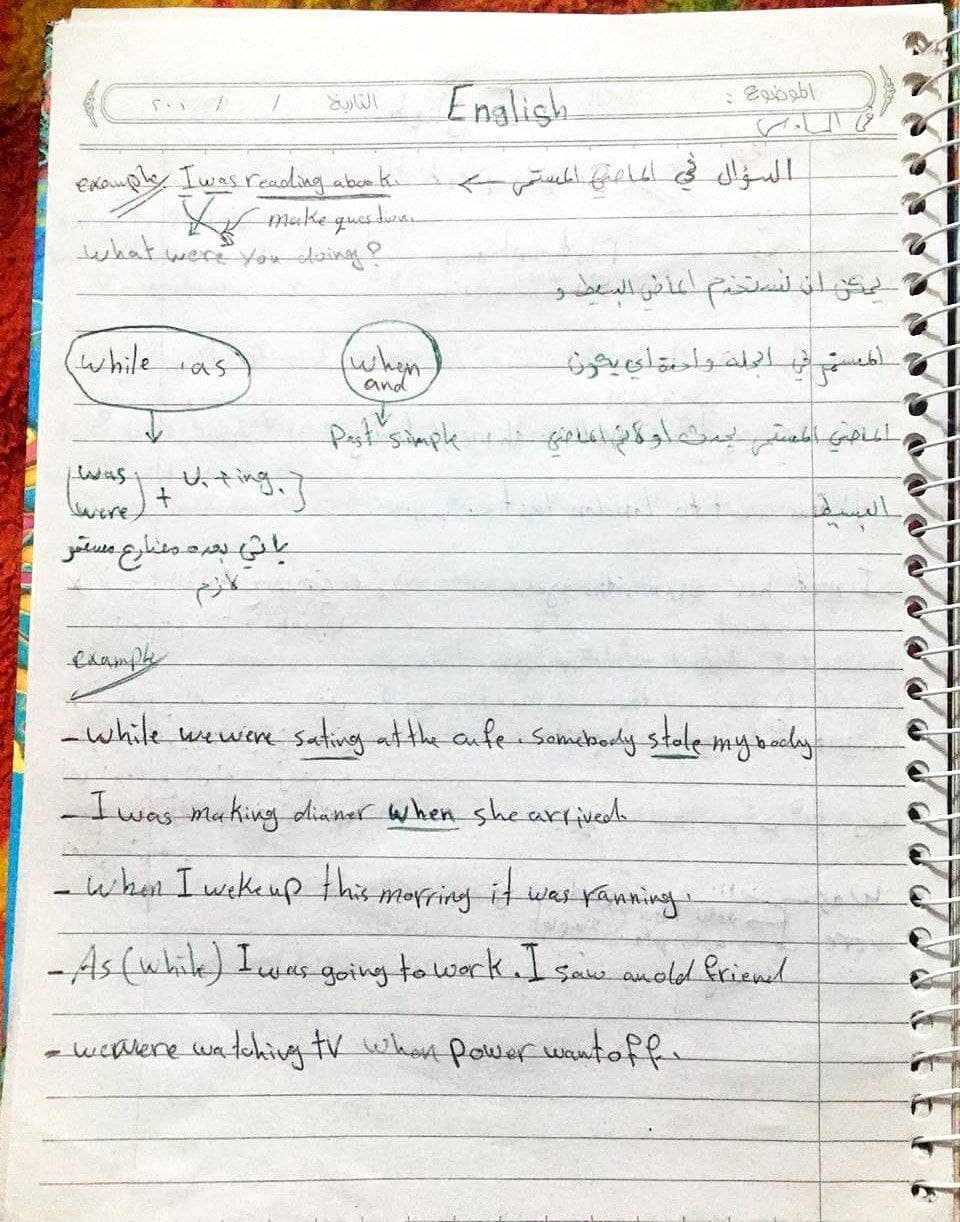 الموضوع : English التاريخ / / ٢٠١
example/ I was reading abook. <- السؤال في الماضي المستمر
make question.
What were you doing?
يمكن ان نستخدم الماضي البسيط و
while , as when and المستمر في الجملة واحدة اي يكون
Past simple الماضي المستمر يحدث اولا ثم الماضي
(was were) + V. + ing. } البسيط
يأتي بعده مضارع مستمر
لازم
example
- while we were sating at the cafe. somebody stole my body
- I was making dianer when she arrived.
- When I wekeup this morring it was ranning.
- As (while) I was going to work. I saw an old friend
- we were watching tv when power want off.